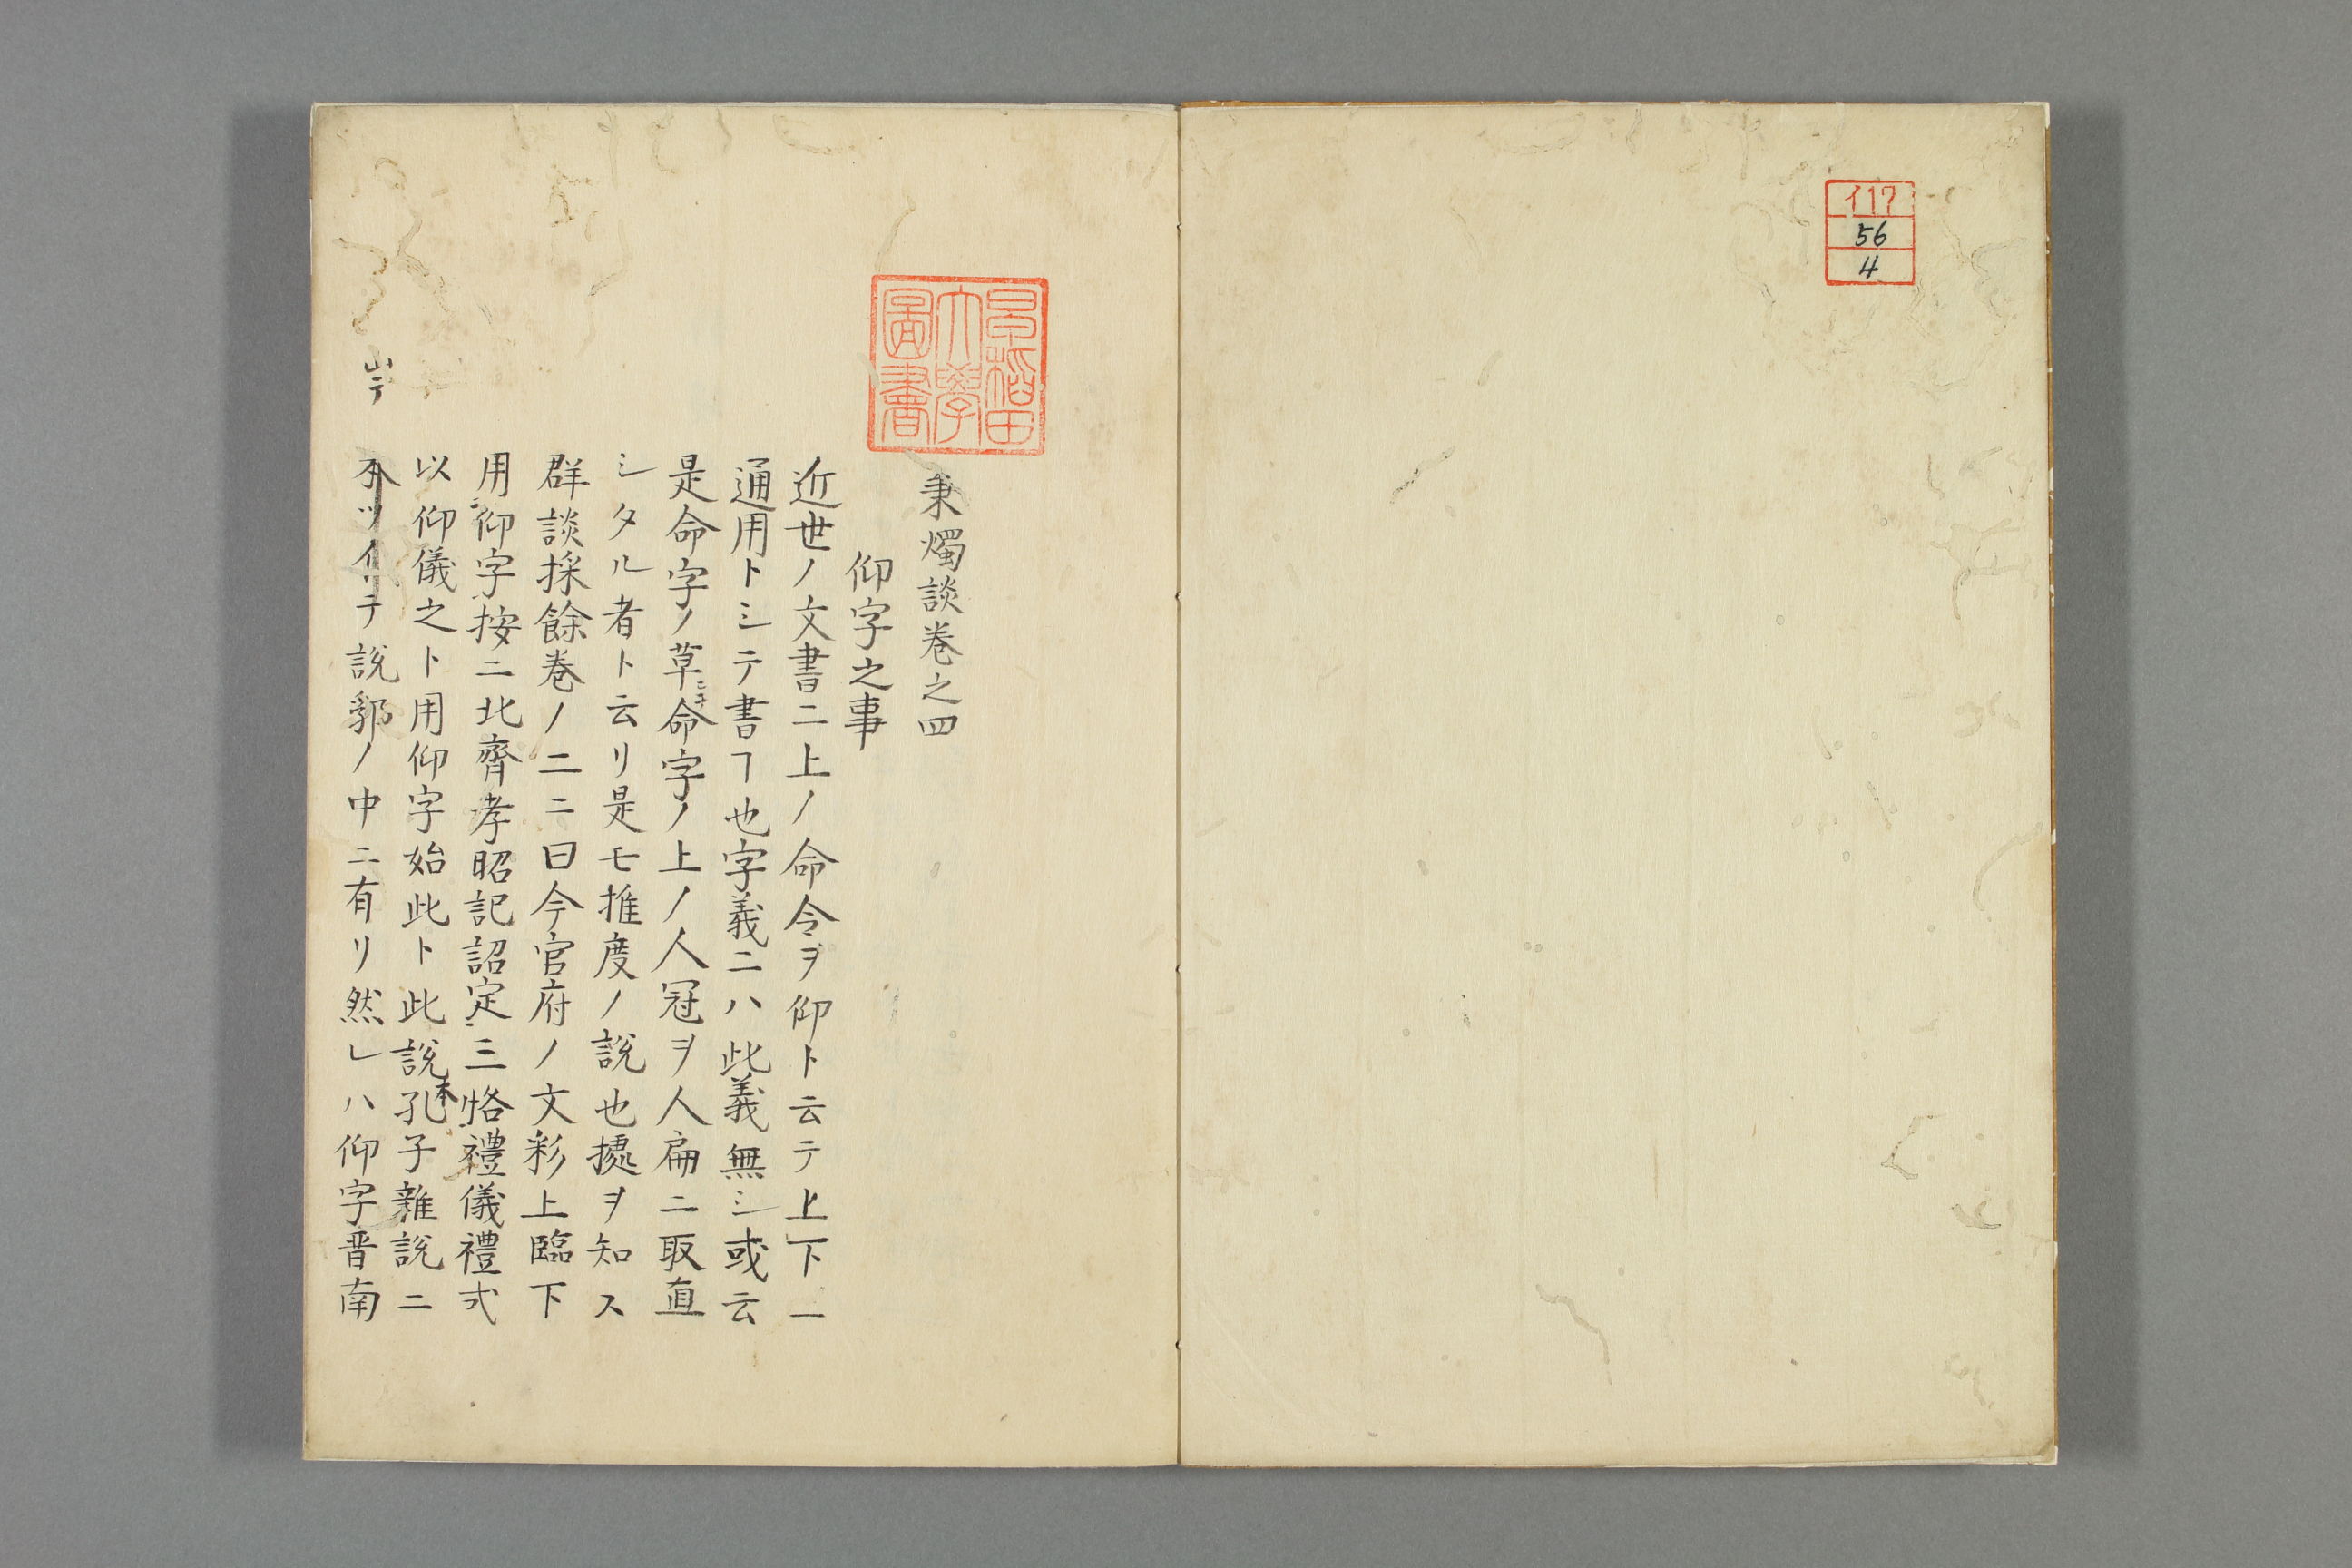 イ17
56
4
早稲田
大學
圖書
秉燭談巻之四
仰字之事
近世ノ文書ニ上ノ命令ヲ仰ト云テ上下一
通用トシテ書ヿ也字義ニハ此義無シ或云
是命字ノ草命字ノ上ノ人冠ヲ人扁ニ取直
シタル者ト云リ是モ推度ノ説也據ヲ知ス
群談採餘巻ノ二ニ曰今官府ノ文彩上臨下
用仰字按ニ北齊孝昭記詔定三恪禮儀禮式
以仰儀之ト用仰字始此ト此説本孔子雜説ニ
ツイテ説郛ノ中ニ有リ然レハ仰字晋南
出テ